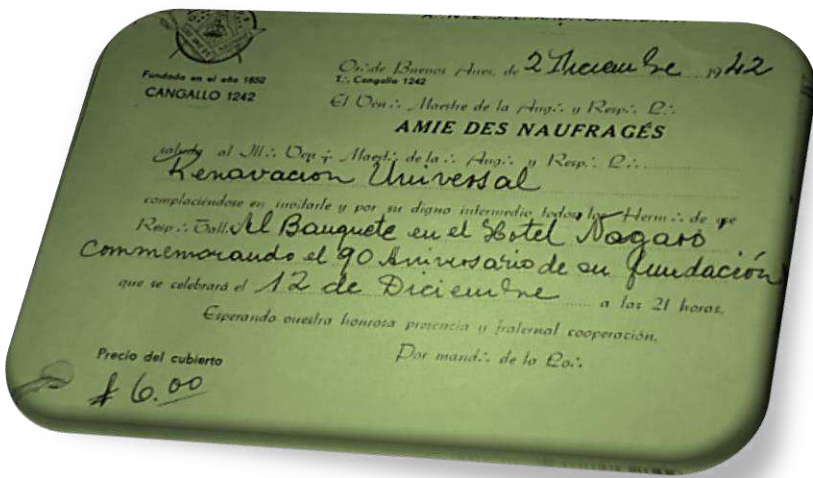 Fundada en el año 1852
CANGALLO 1242
Or∴ de Buenos Aires, de 2 Diciembre 1942
T∴ Cangallo 1242
El Ven∴ Maestre de la Aug∴ y Resp∴ L∴
AMIE DES NAUFRAGÉS
saluda al Ill∴ Ven∴ Maest∴ de la ∴ Aug∴ y Resp∴ L∴
Renavacion Universal
complaciéndose en invitarle y por su digno intermedio todos los Herm∴ de ese
Resp∴ Tall∴ Al Banquete en el Hotel Nogaró
Commemorando el 90 Aniversario de su fundación
que se celebrará el 12 de Diciembre a las 21 horas.
Esperando vuestra honrosa presencia y fraternal cooperación.
Por mand∴ de la Lo∴
Precio del cubierto
$ 6.00